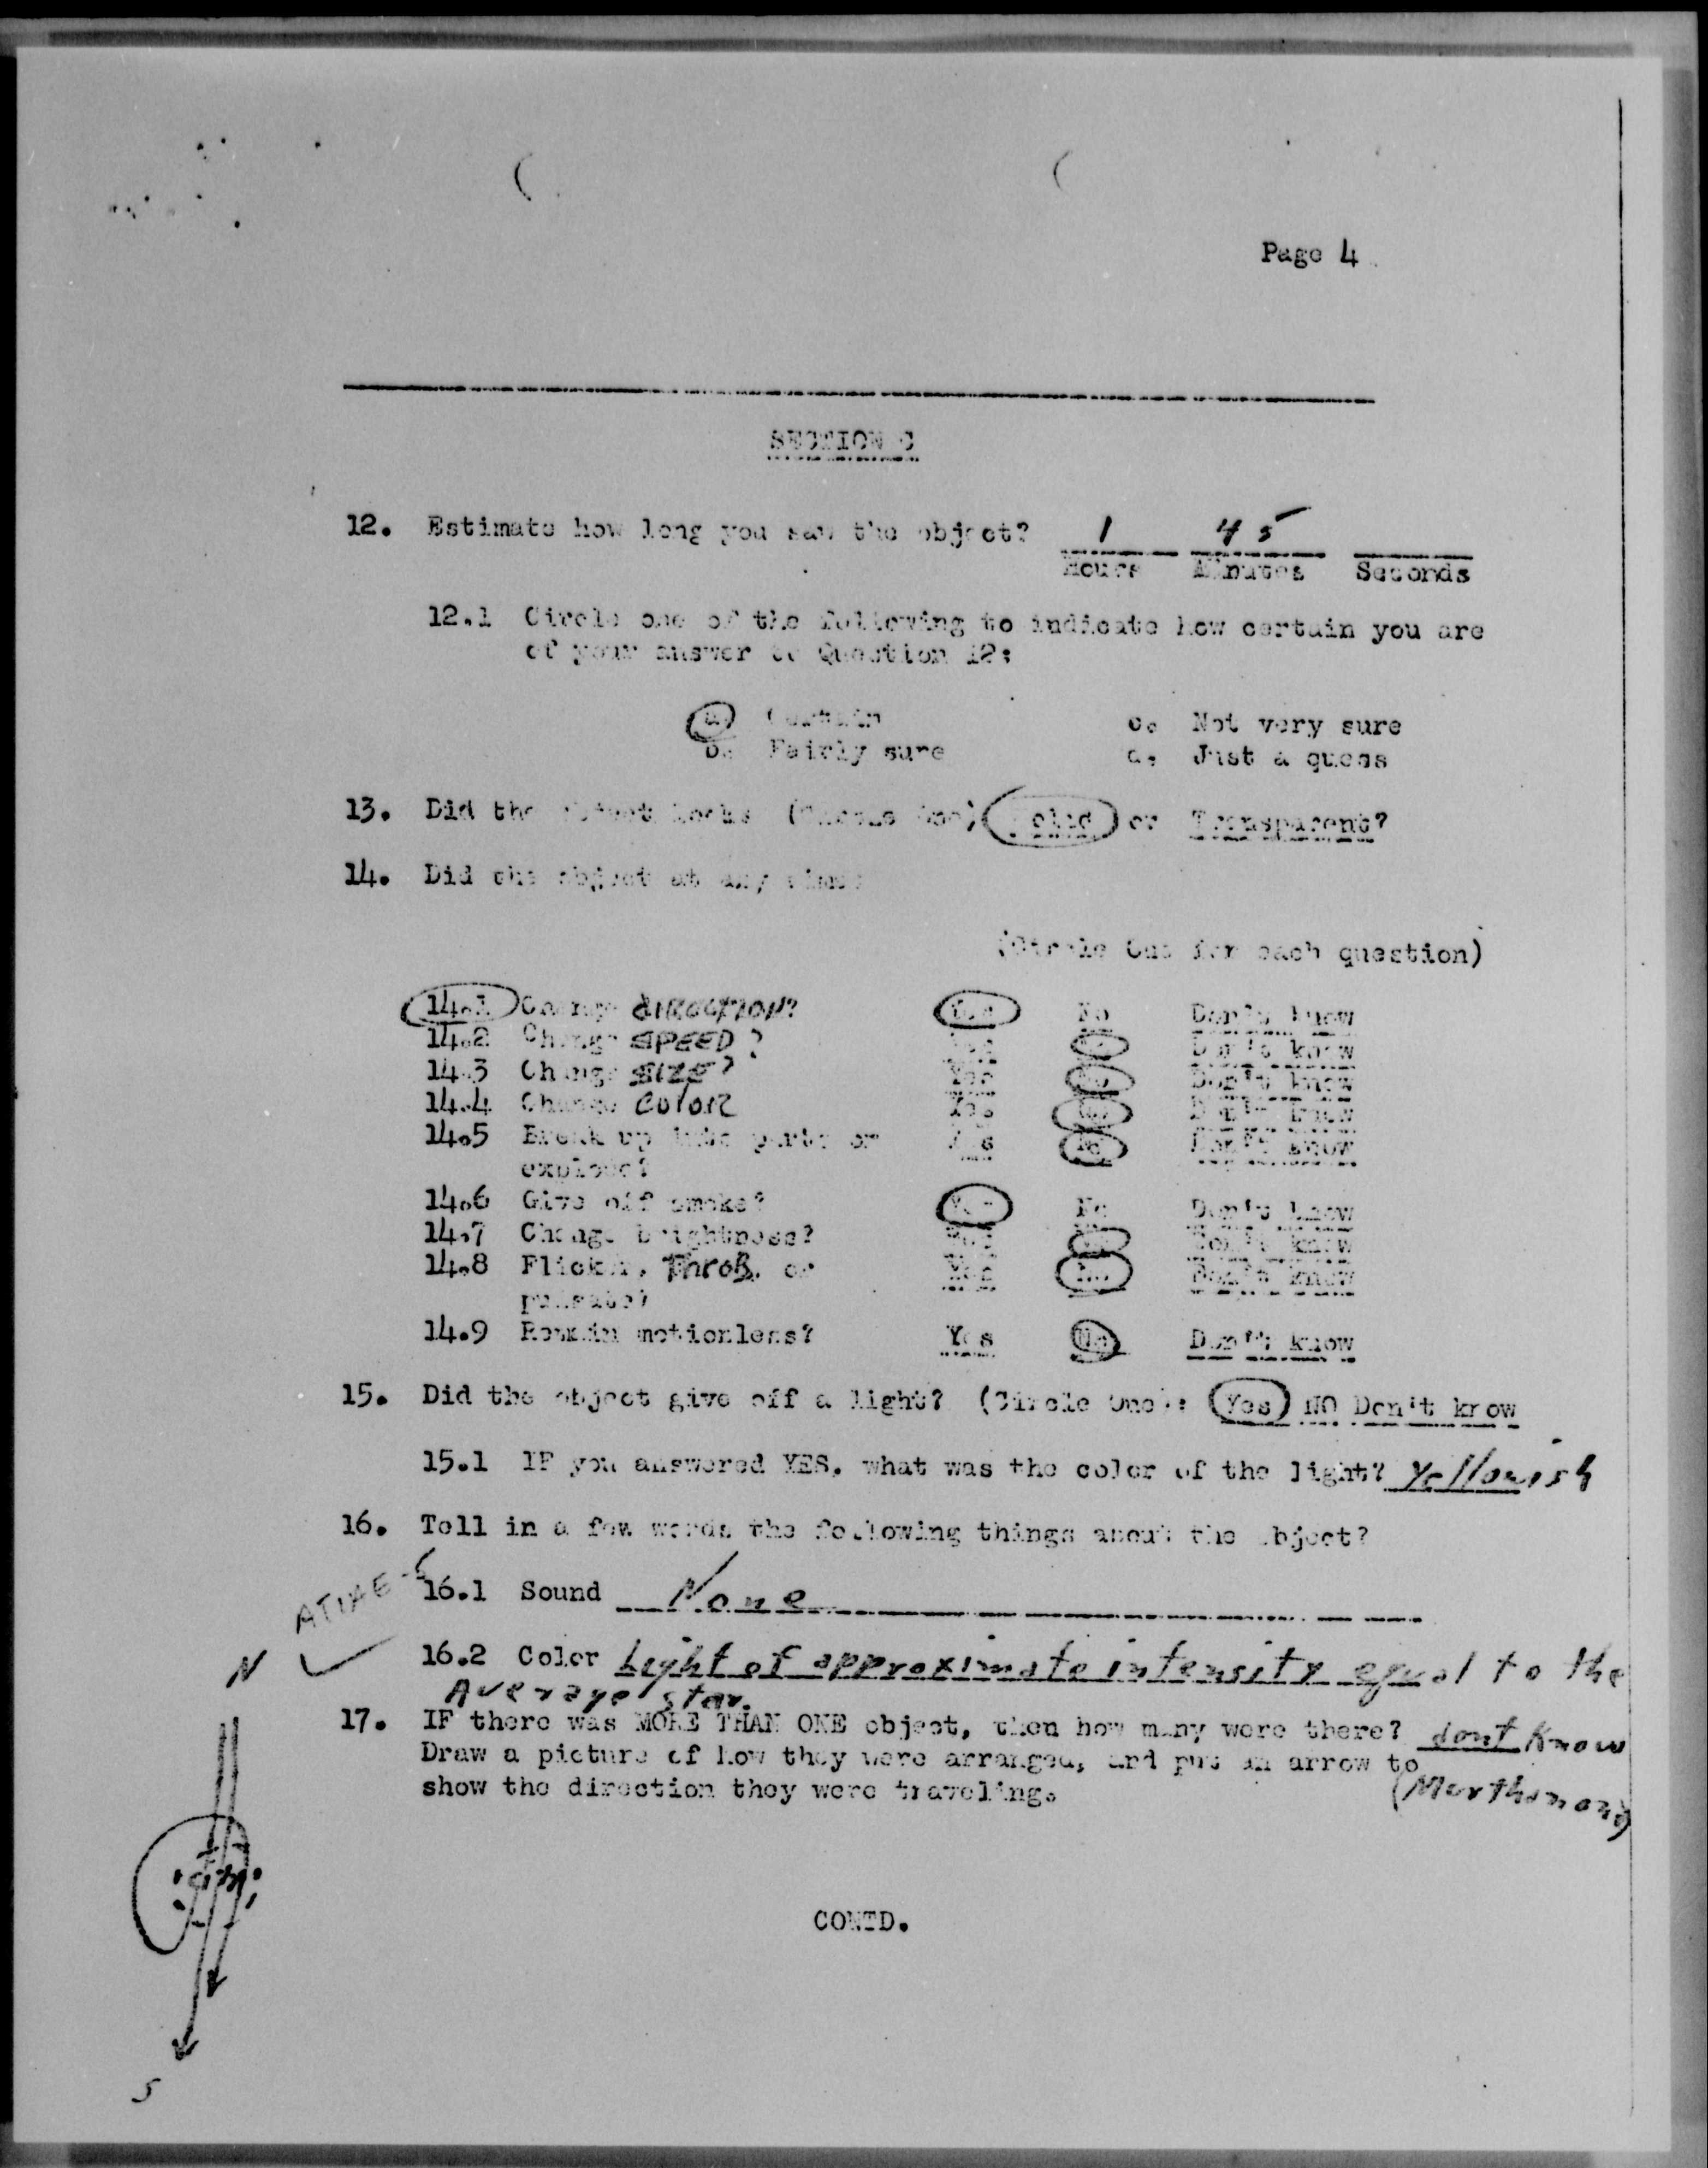 Page 4
SECTION C
12. Estimate how long you saw the object? 1 45
Hours Minutes Seconds
12.1 Circle one of the following to indicate how certain you are
of your answer to Question 12:
a. Certain c. Not very sure
b. Fairly sure d. Just a guess
13. Did the object looks (Circle One) Solid or Transparent?
14. Did the object at any time:
(Circle One for each question)
14.1 Change DIRECTION? Yes No Don't know
14.2 Change SPEED? Yes No Don't know
14.3 Change SIZE? Yes No Don't know
14.4 Change COLOR Yes No Don't know
14.5 Break up into parts or Yes No Don't know
explode?
14.6 Give off smoke? Yes No Don't know
14.7 Change brightness? Yes No Don't know
14.8 Flicker, Throb, or Yes No Don't know
pulsate?
14.9 Remain motionless? Yes No Don't know
15. Did the object give off a light? (Circle One): Yes NO Don't know
15.1 IF you answered YES, what was the color of the light? Yellowish
16. Tell in a few words the following things about the object?
16.1 Sound None
16.2 Color Light of approximate intensity equal to the
Average star.
N
17. IF there was MORE THAN ONE object, then how many were there? dont know
Draw a picture of how they were arranged, and put an arrow to
show the direction they were traveling.
CONTD.
S